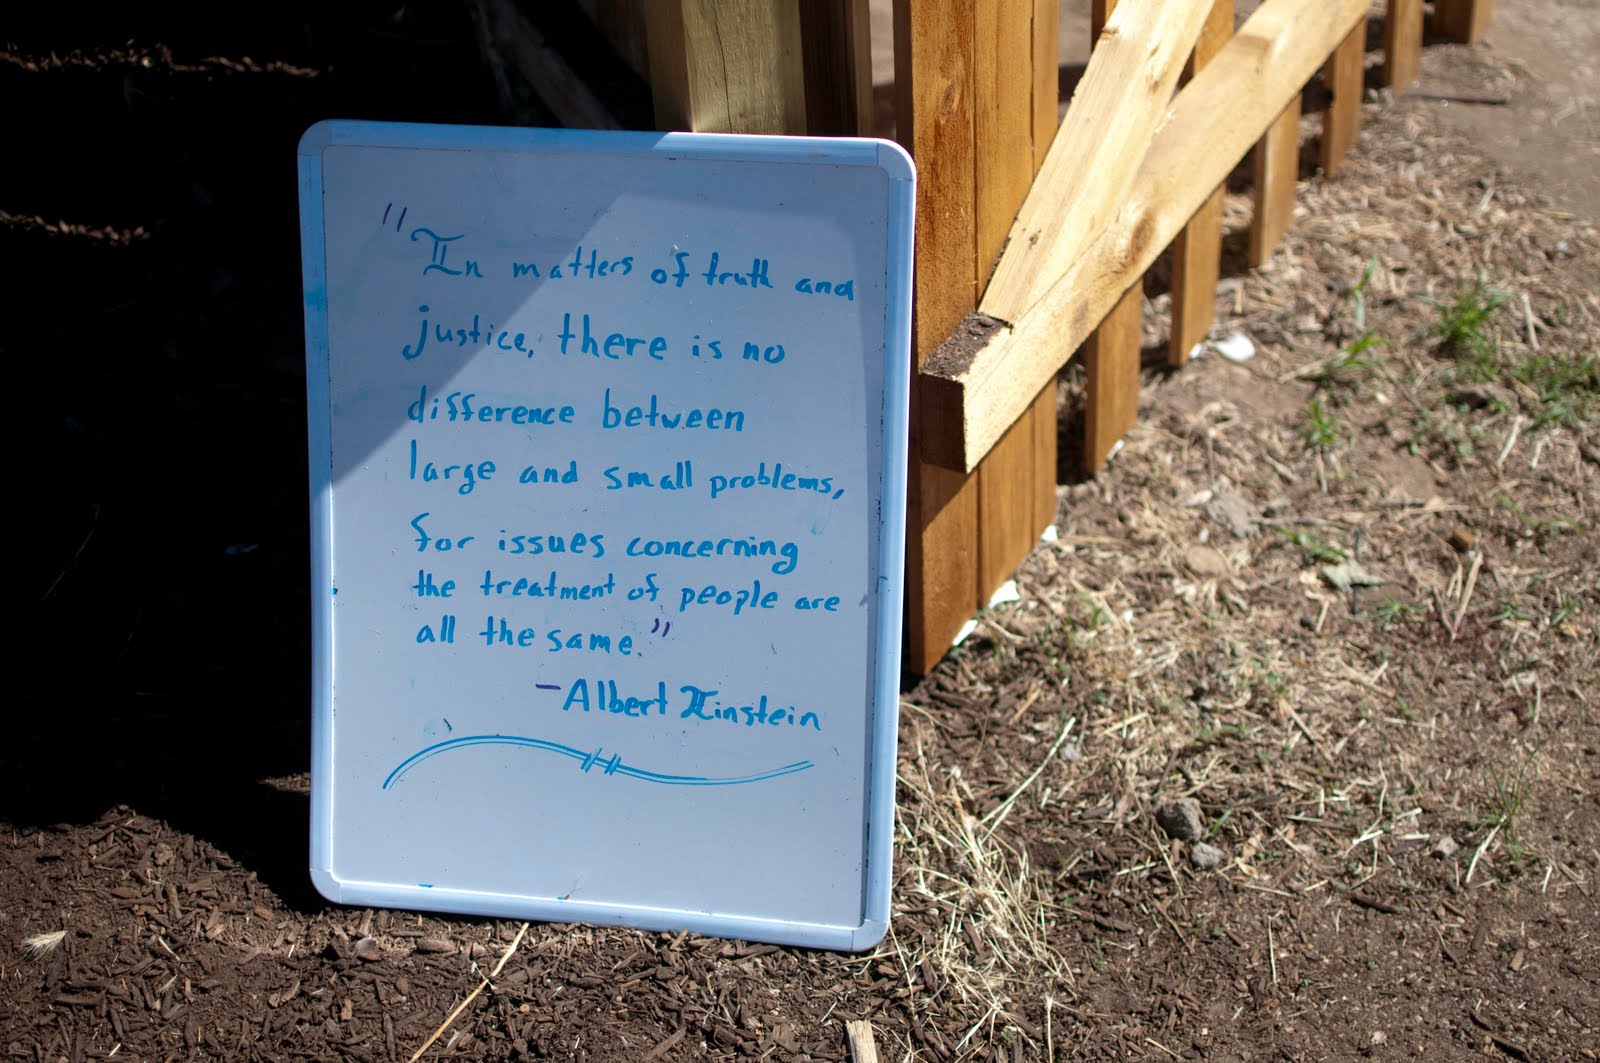 "In matters of truth and
justice, there is no
difference between
large and small problems,
for issues concerning
the treatment of people are
all the same."
-Albert Einstein